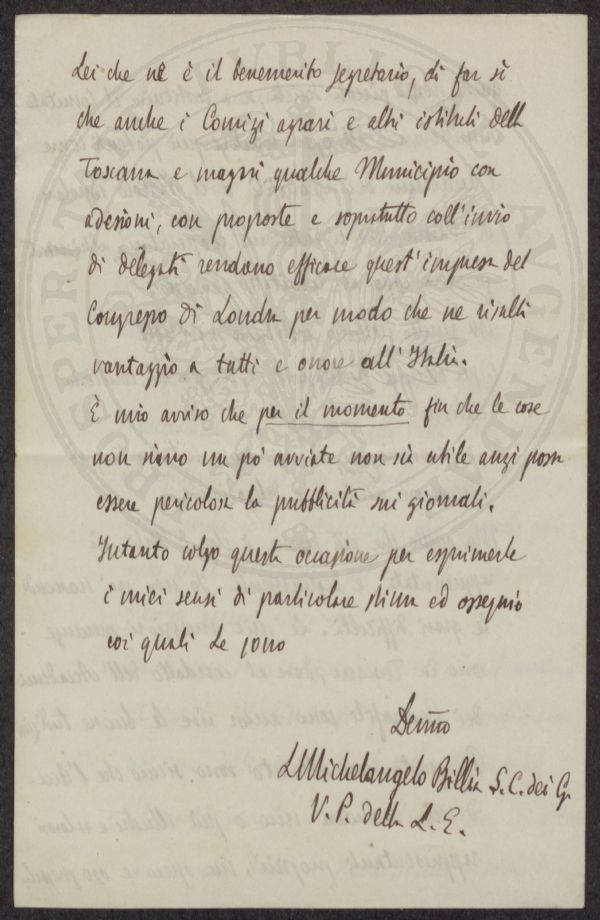 Lei che nè è il benemerito segretario, di far sì
che anche i Comizi agrari e altri istituti della
Toscana e magari qualche Municipio con
adesioni, con proposte e sopratutto coll'invio
di delegati rendano efficace quest'impresa del
Congresso di Londra per modo che ne risulti
vantaggio a tutti e onore all'Italia.
È mio avviso che per il momento fin che le cose
non siano un pò avviate non sia utile anzi possa
essere pericolosa la pubblicità sui giornali.
Intanto colgo questa occasione per esprimerle
i miei sensi di particolare stima ed ossequio
coi quali Le sono
Devmo
LMichelangelo Billia S.C. dei G.
V.P. della L.E.